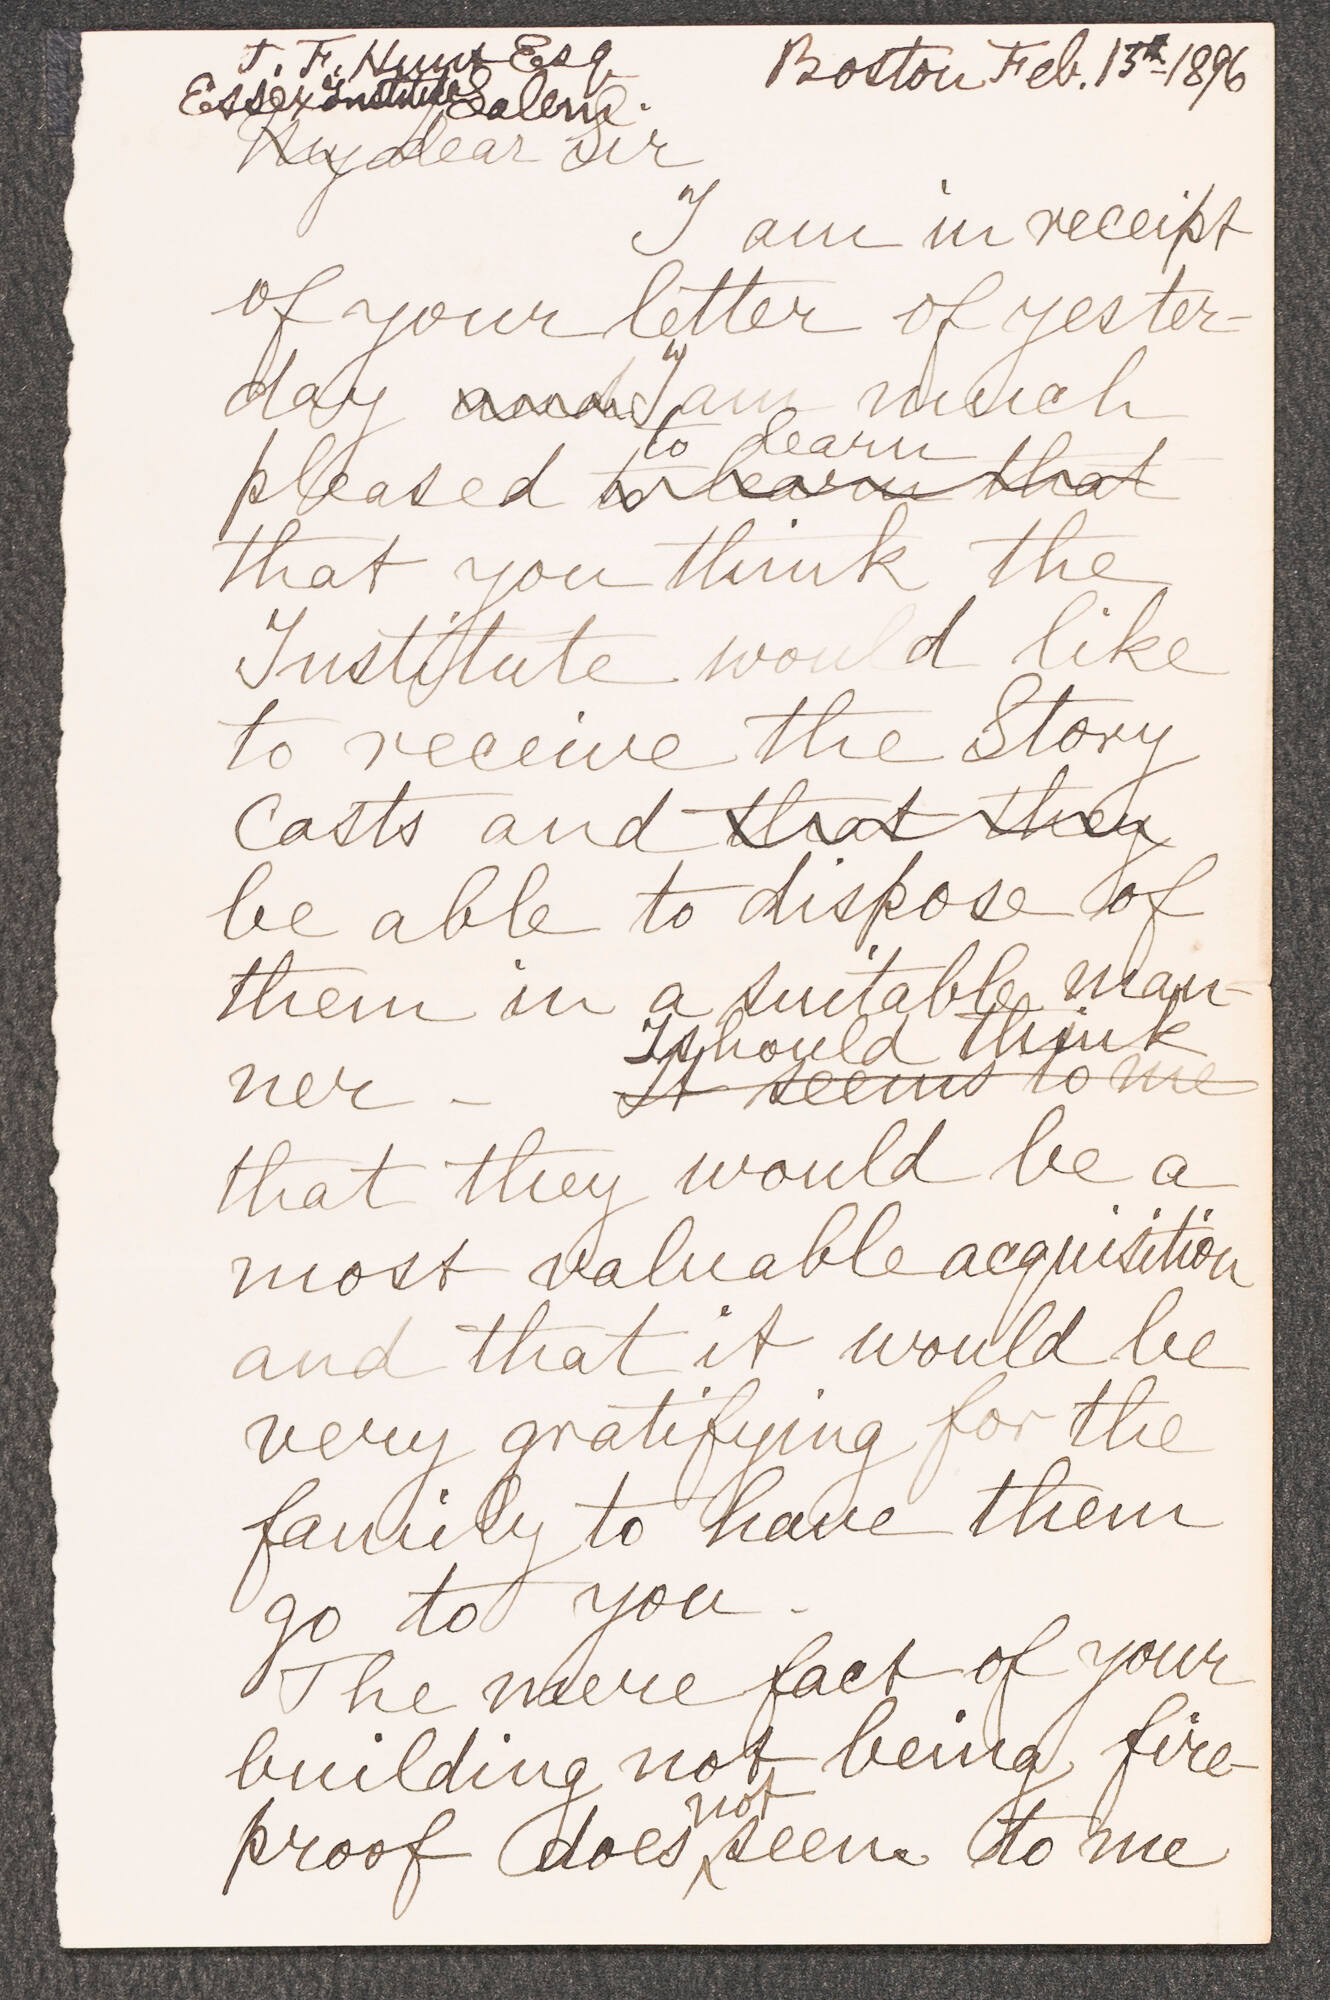 T. F. Hunt Esq
Boston Feb. 13th 1896
Essex Institute Salem.
My dear Sir
I am in receipt
of your letter of yester-
day and I am much
to learn
pleased to learn that
that you think the
Institute would like
to receive the Story
Casts and that they
be able to dispose of
them in a suitable man-
I should think
ner - It seems to me
that they would be a
most valuable acquisition
and that it would be
very gratifying for the
family to have them
go to you.
The mere fact of your
building not being fire-
not
proof does seem to me